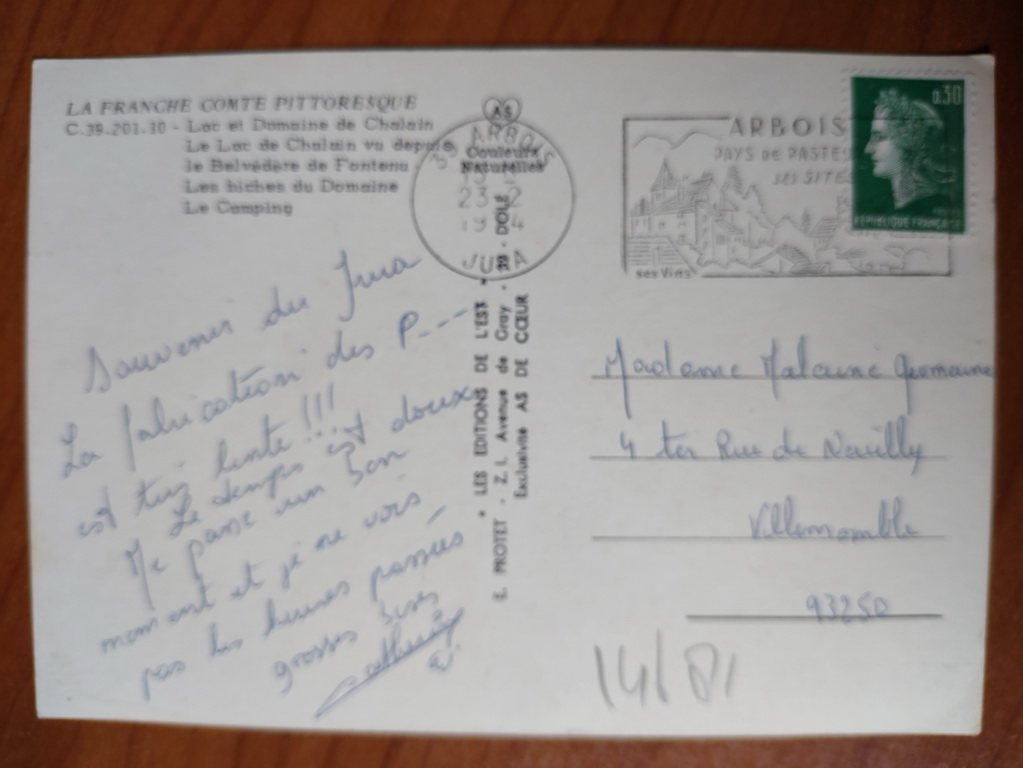 LA FRANCHE COMTE PITTORESQUE
C.39.201.10 - Lac et Domaine de Chalain
Le Lac de Chalain vu depuis
le Belvédère de Fontenu
Les biches du Domaine
Le Camping
Souvenir du Jura
La fabrication des P----
est très lente !!!
Le temps est doux
Je passe un bon
moment et je ne vois
pas les heures passées
grosses bises
AS
Couleurs
Naturelles
39 ARBOIS
23-2
JURA
E. PROTET * LES EDITIONS DE L'EST *
Z. I. Avenue de Gray - 39 - DOLE
Exclusivité AS DE CŒUR
ARBOIS
PAYS DE PASTE
SES SITE
ses Vins
0.30
REPUBLIQUE FRANÇAISE
Madame Germaine
4 ter Rue de Neuilly
Villemomble
93250
14/81